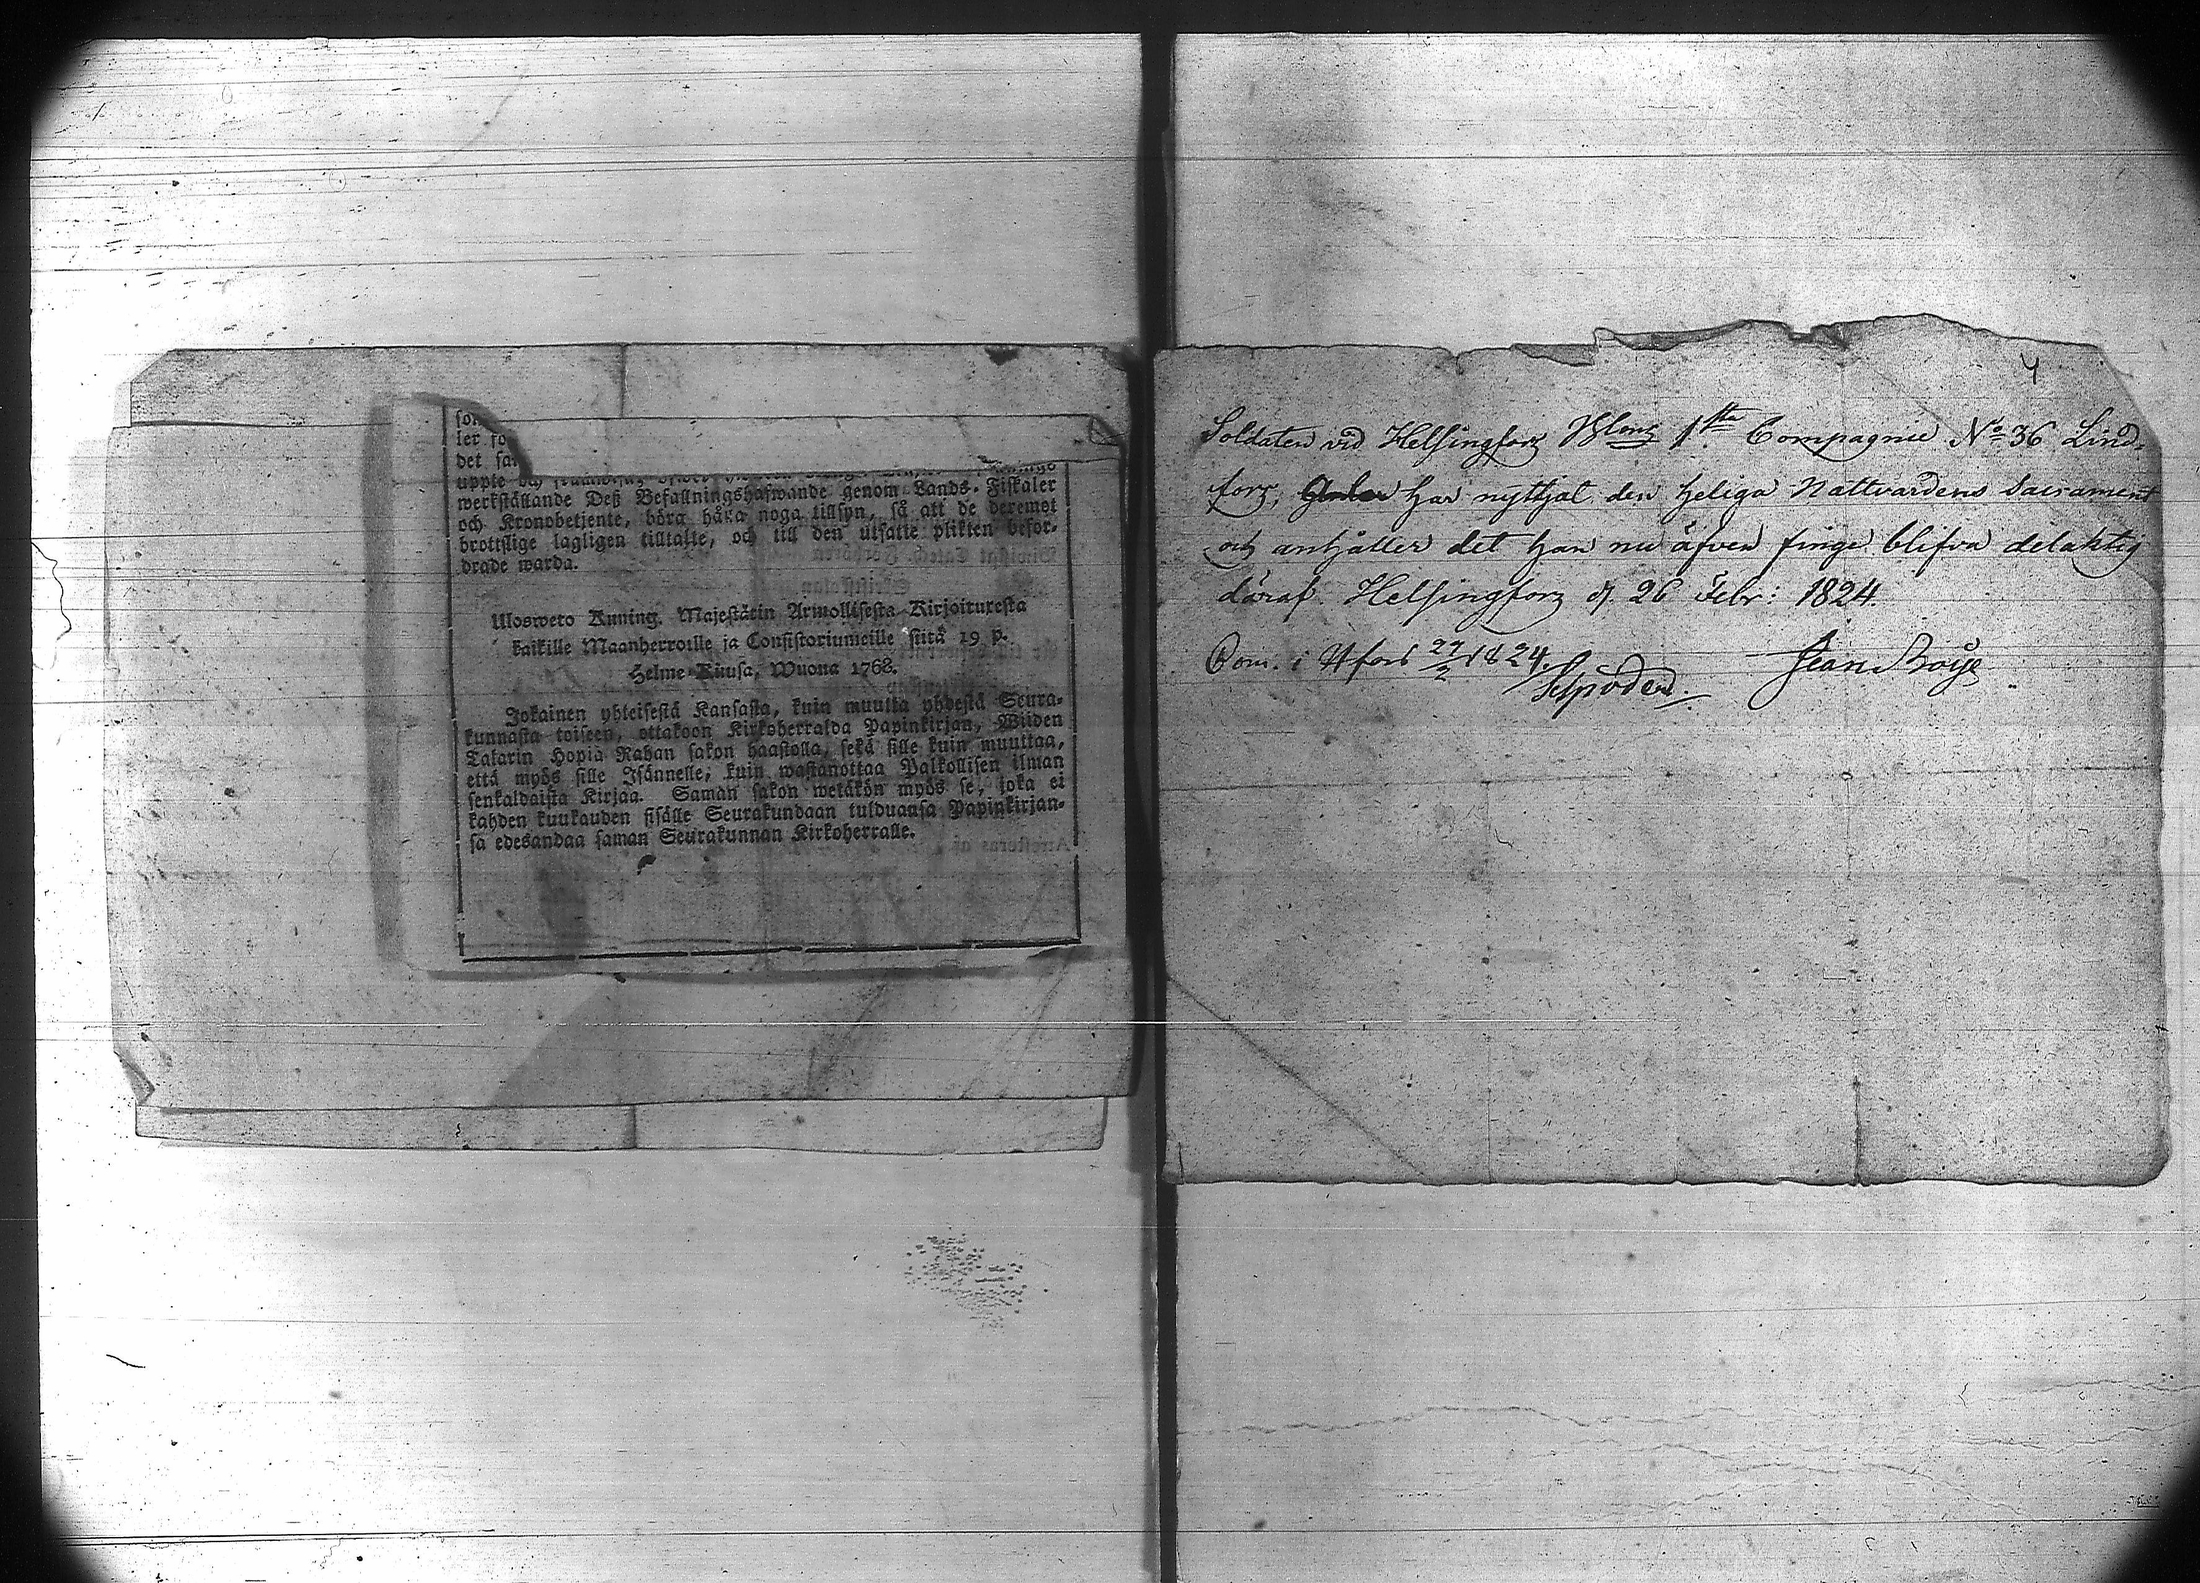 det
werkställande Deß Befallningshafwande genom Lands-Fiskaler
och Kronobetjente, böra hafa noga tillsyn, så att de deremot
brottslige lagligen tilltalte, och till den utsatte plikten befor-
drade warda.
Ulosweto Kuning. Majestätin Armollisesta Kirjoituresta
kaikille Maanherroille ja Consistoriumeille siitä 19 p.
Helme-Kuusa, Wuona 1762.
Jokainen yhteisestä Kansasta, kuin muutta yhdestä Seura-
kunnasta toiseen, ottakoon Kirkoherralda Papinkirjan, Wiiden
Talarin Hopia Rahan sakon haastolla, sekä sille kuin muuttaa,
että myös sille Isännelle, kuin wastanottaa Palkollisen ilman
senkaldaista Kirjaa. Saman sakon wetäkön myös se, joka ei
kahden kuukauden sisälle Seurakundaan tulduansa Papinkirjan-
sa edesandaa saman Seurakunnan Kirkoherralle.
4
Soldaten vid Helsingfors 1sta Compagnie No 36 Lind-
fors, har nythjat den heliga Nattvardens Sacrament
och anhåller det han nu äfven finge blifva delaktig
däraf Helsingfors d 26 Febr: 1824.
Com. i H fors 27/2 1824.
Jean Boije